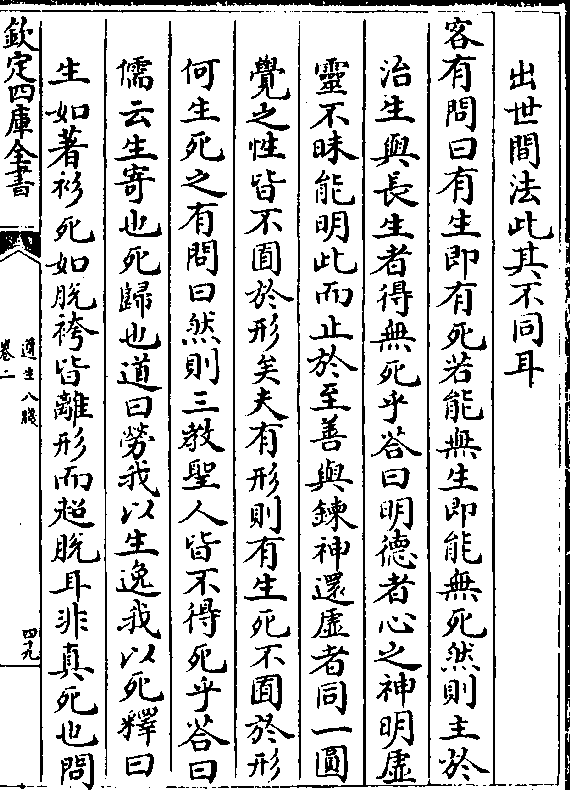 出世間法此其不同耳
客有問曰有生即有死若能無生即能無死然則主於
治生與長生者得無死乎答曰明德者心之神明虛
靈不昧能明此而止於至善與鍊神還虛者同一圓
覺之性皆不囿於形矣夫有形則有生死不囿於形
何生死之有問曰然則三教聖人皆不得死乎答曰
儒云生寄也死歸也道曰勞我以生逸我以死釋曰
生如著衫死如脫袴皆離形而超脫耳非真死也問
欽定四庫全書
遵生八牋
卷二
四九